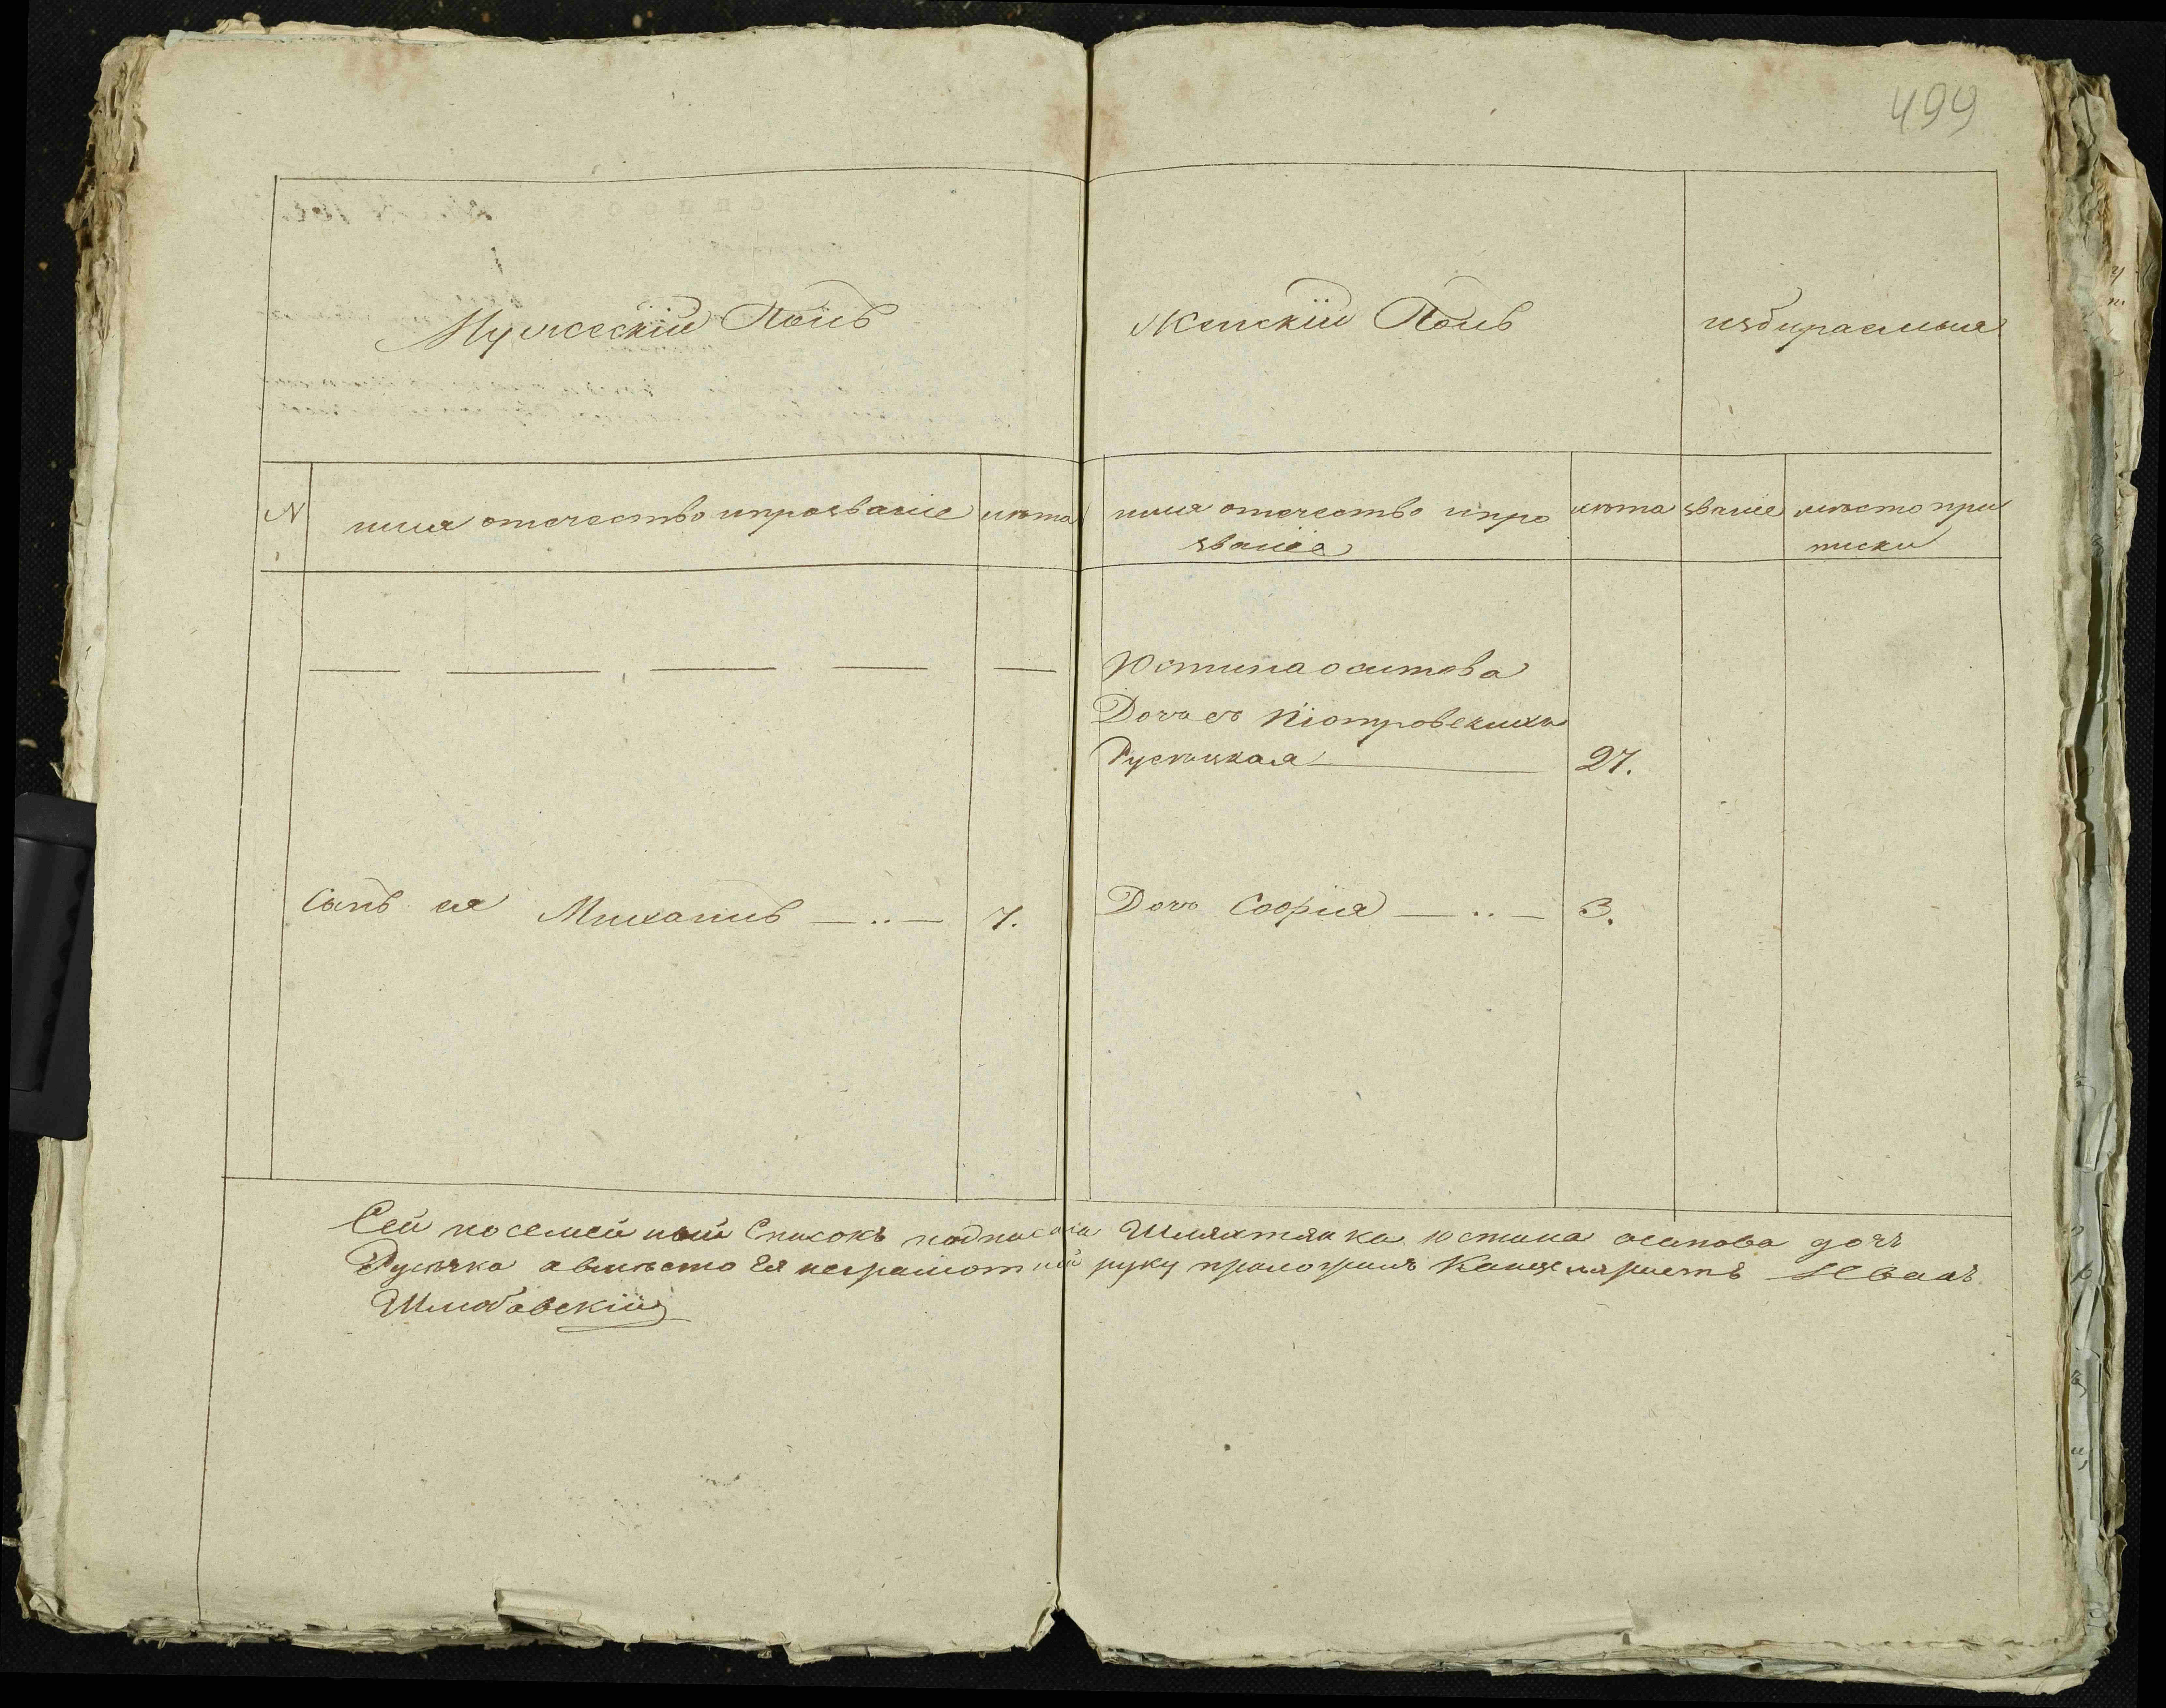 499
Мужескїй Полъ
Женскїй Полъ
избираемыя
N имя отечество и прозваніе лѣта
имя отечество и про
званіе
лѣта званіе мѣсто при
писки
Юстина осипова
Дочь съ Піотровскихъ
Русѣцкая 27.
Сынъ ея Михаилъ 7.
Дочь Софія 3.
Сей посемейный Списокъ подписала Шляхтянка юстина осипова дочъ
а вмѣсто Ея неграмотной руку приложилъ Канцеляристъ Иванъ